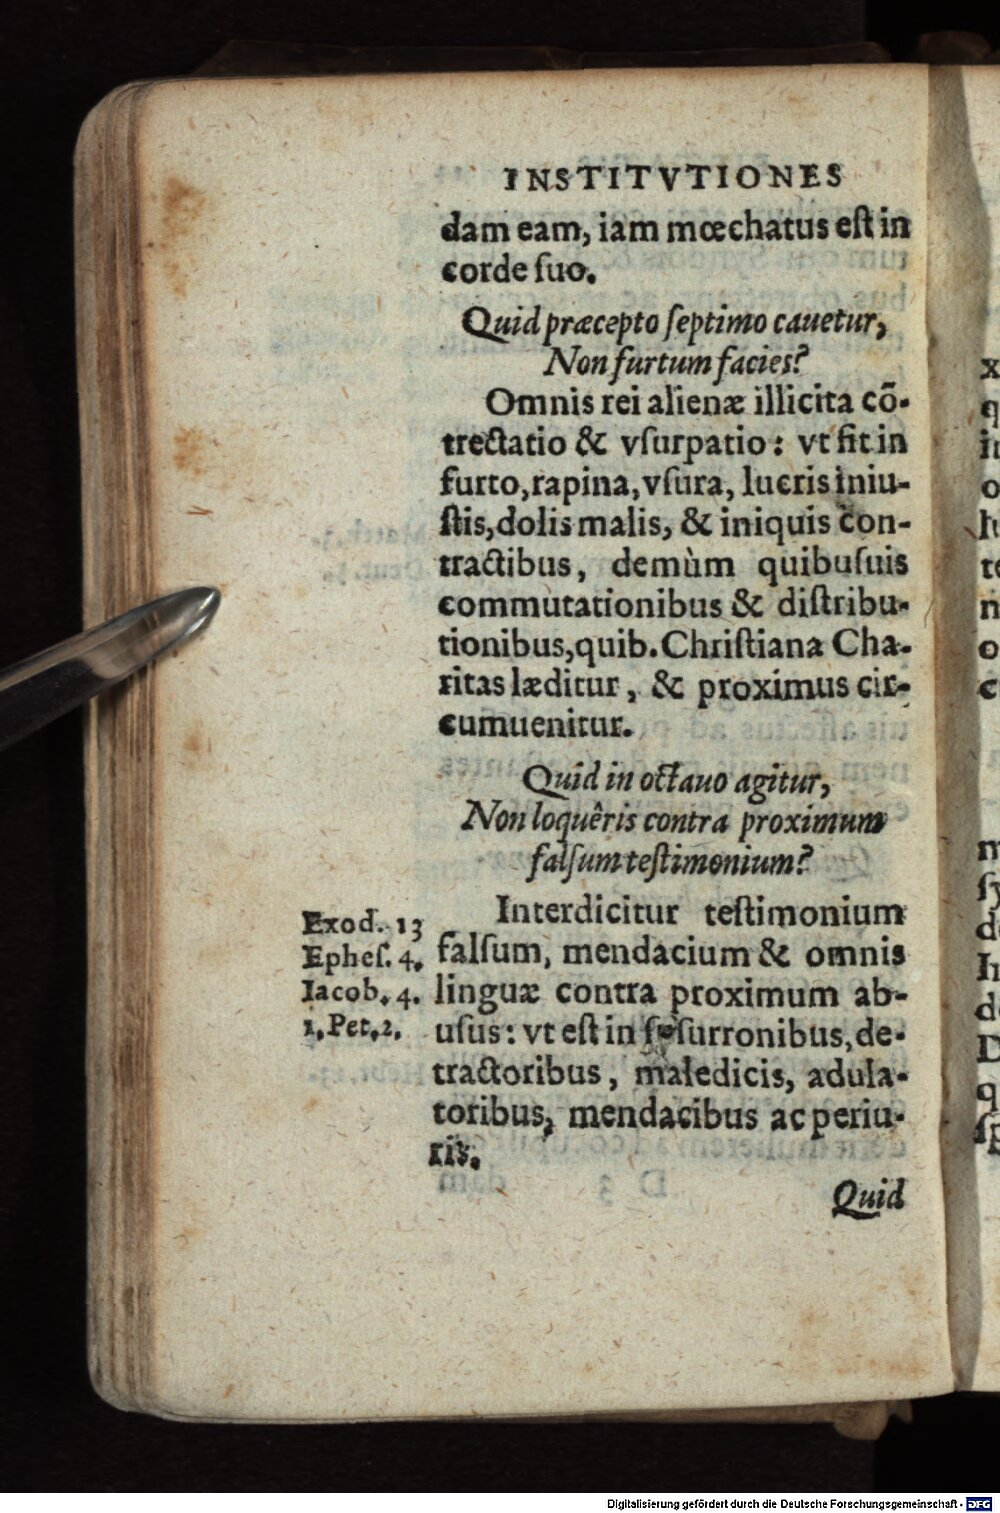 INSTITVTIONES
dam eam, iam mœchatus eſt in
corde ſuo.
Quid præcepto ſeptimo cauetur,
Non furtum facies?
Omnis rei alienæ illicita cō-
trectatio & vſurpatio: vt fit in
furto, rapina, vſura, lucris iniu-
ſtis, dolis malis, & iniquis con-
tractibus, demùm quibuſuis
commutationibus & diſtribu-
tionibus, quib. Chriſtiana Cha-
ritas læditur, & proximus cir-
cumuenitur.
Quid in octauo agitur,
Non loquêris contra proximum
falſum teſtimonium?
Interdicitur teſtimonium
falſum, mendacium & omnis
linguæ contra proximum ab-
uſus: vt eſt in ſuſurronibus, de-
tractoribus, maledicis, adula-
toribus, mendacibus ac periu-
ris.
Exod. 13
Epheſ. 4.
Iacob. 4.
1. Pet. 2.
Quid
Digitalisierung gefördert durch die Deutsche Forschungsgemeinschaft - DFG